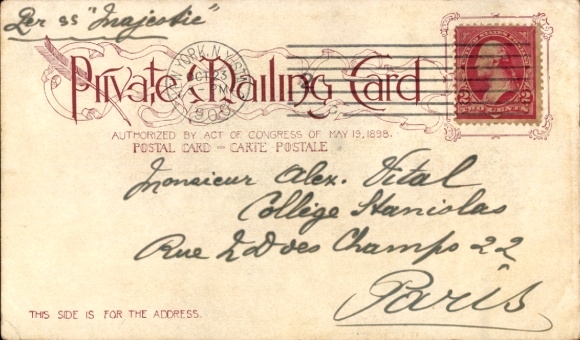 Per ss "Majestic"
NEW YORK, N.Y.
OCT 23
PM
1900
Private Mailing Card
AUTHORIZED BY ACT OF CONGRESS OF MAY 19, 1898.
POSTAL CARD – CARTE POSTALE
2 TWO CENTS 2
Monsieur Alex. Vital
Collège Stanislas
Rue N D des Champs 22
Paris
THIS SIDE IS FOR THE ADDRESS.